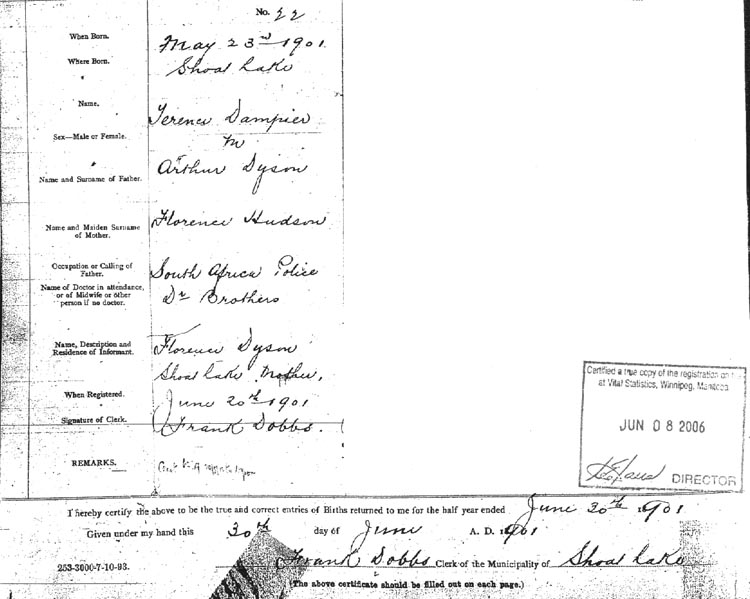 No. 22
When Born.
May 23rd 1901.
Where Born.
Shoal Lake
Name.
Terence Dampier
Sex—Male or Female.
M
Name and Surname of Father.
Arthur Dyson
Name and Maiden Surname
of Mother.
Florence Hudson
Occupation or Calling of
Father.
South Africa Police
Name of Doctor in attendance,
or of Midwife or other
person if no doctor.
Dr Brothers
Name, Description and
Residence of Informant.
Florence Dyson
Shoal Lake Mother,
When Registered.
June 20th 1901
Signature of Clerk.
Frank Dobbs.
REMARKS.
Certified a true copy of the registration on
at Vital Statistics, Winnipeg, Manitoba
JUN 08 2006
DIRECTOR
I hereby certify the above to be the true and correct entries of Births returned to me for the half year ended June 30th 1901
Given under my hand this 30th day of June A. D. 1901
Frank Dobbs Clerk of the Municipality of Shoal Lake
253-3000-7-10-93.
(The above certificate should be filled out on each page.)